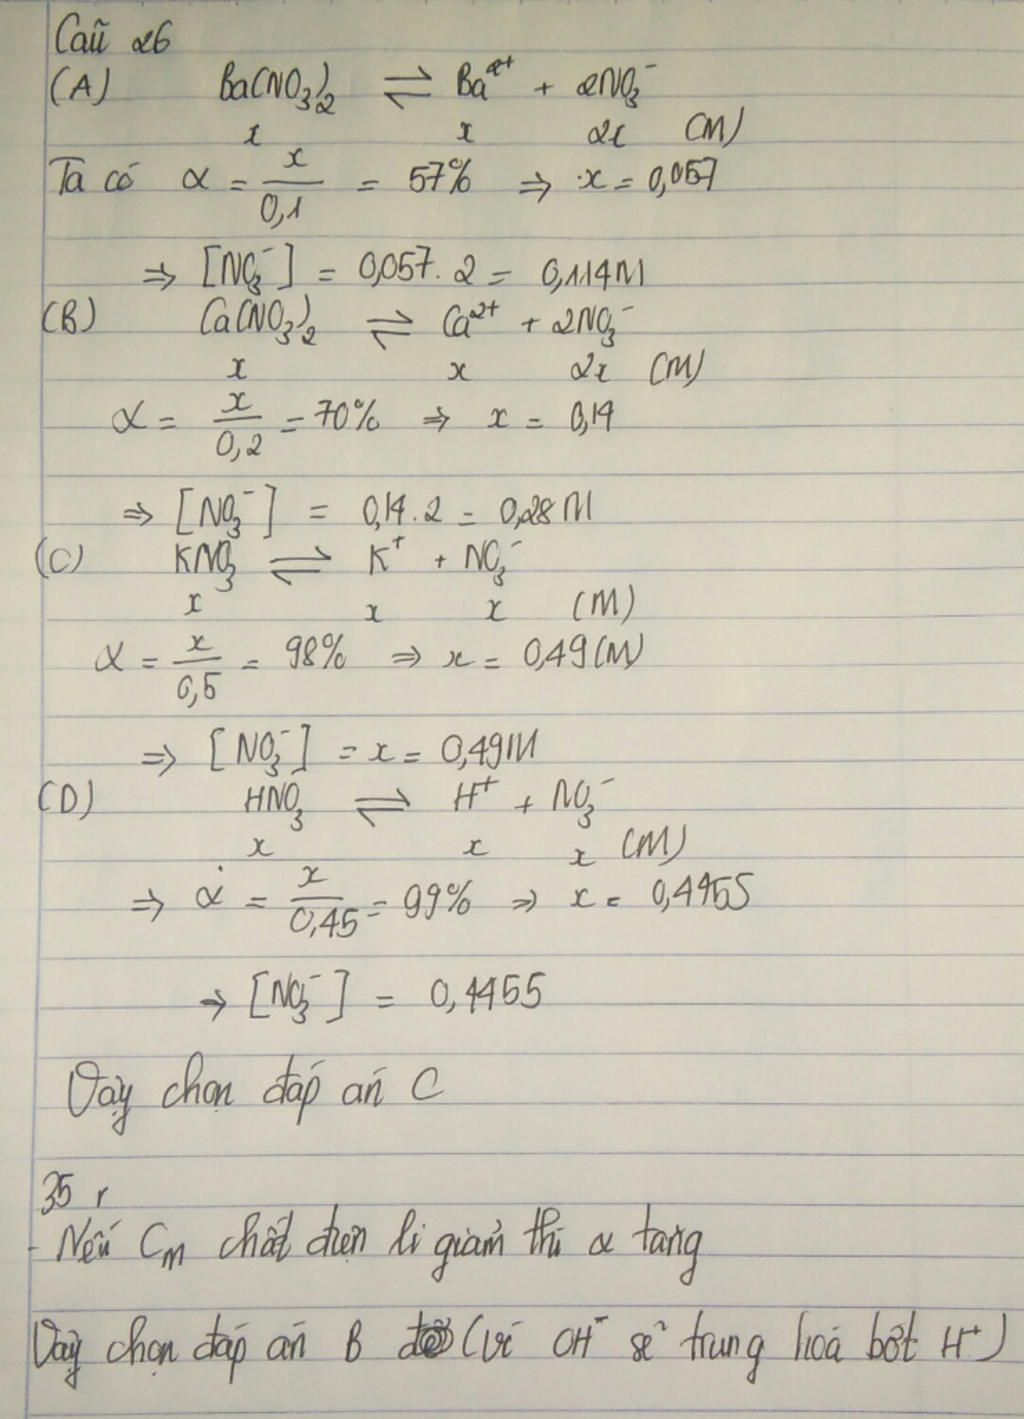 Câu 26
(A) Ba(NO₃)₂ ⇌ Ba²⁺ + 2NO₃⁻
x x 2x (M)
Ta có α = x/0,1 = 57% ⇒ x = 0,057
⇒ [NO₃⁻] = 0,057.2 = 0,114M
(B) Ca(NO₃)₂ ⇌ Ca²⁺ + 2NO₃⁻
x x 2x (M)
α = x/0,2 = 70% ⇒ x = 0,14
⇒ [NO₃⁻] = 0,14.2 = 0,28M
(C) KNO₃ ⇌ K⁺ + NO₃⁻
x x x (M)
α = x/0,5 = 98% ⇒ x = 0,49(M)
⇒ [NO₃⁻] = x = 0,49M
(D) HNO₃ ⇌ H⁺ + NO₃⁻
x x x (M)
⇒ α = x/0,45 = 99% ⇒ x = 0,4455
⇒ [NO₃⁻] = 0,4455
Vậy chọn đáp án C
35,
- Nếu Cm chất điện li giảm thì α tăng
Vậy chọn đáp án B (vì OH⁻ sẽ trung hoà bớt H⁺)